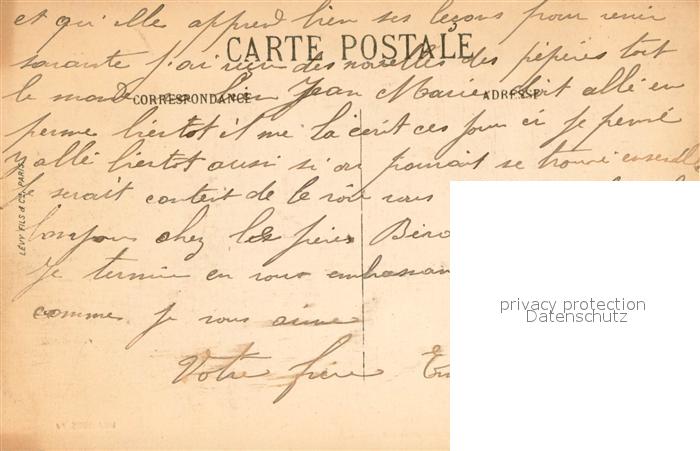 et qu'elle apprend bien ses leçons pour venir
savante j'ai reçu des nouvelles des pépères tout
CARTE POSTALE
le monde bien Jean Marie doit allé en
CORRESPONDANCE
ADRESSE
perme bientot il me la écrit ces jour ci je pense
y allé bientot aussi si on pourrait se trouvé ensemble
Je serait content de le voir vous
bonjour chez les frères
Je termine en vous embrassan
comme je vous aime
Votre frère
LEVY FILS & Cie, PARIS
privacy protection
Datenschutz